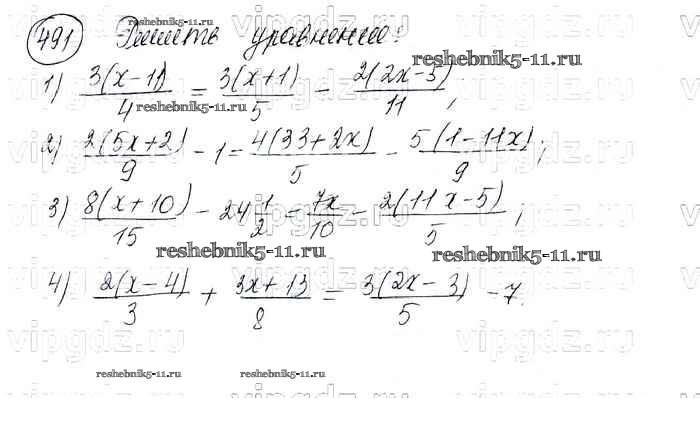 491 Решить уравнение:
1) 3(x-11)/4 = 3(x+1)/5 - 2(2x-5)/11;
2) 2(5x+2)/9 - 1 = 4(33+2x)/5 - 5(1-11x)/9;
3) 8(x+10)/15 - 24 1/2 = 7x/10 - 2(11x-5)/5;
4) 2(x-4)/3 + 3x+13/8 = 3(2x-3)/5 - 7.
reshebnik5-11.ru
reshebnik5-11.ru
reshebnik5-11.ru
reshebnik5-11.ru
reshebnik5-11.ru
reshebnik5-11.ru
vipgdz.ru
vipgdz.ru
vipgdz.ru
vipgdz.ru
vipgdz.ru
vipgdz.ru